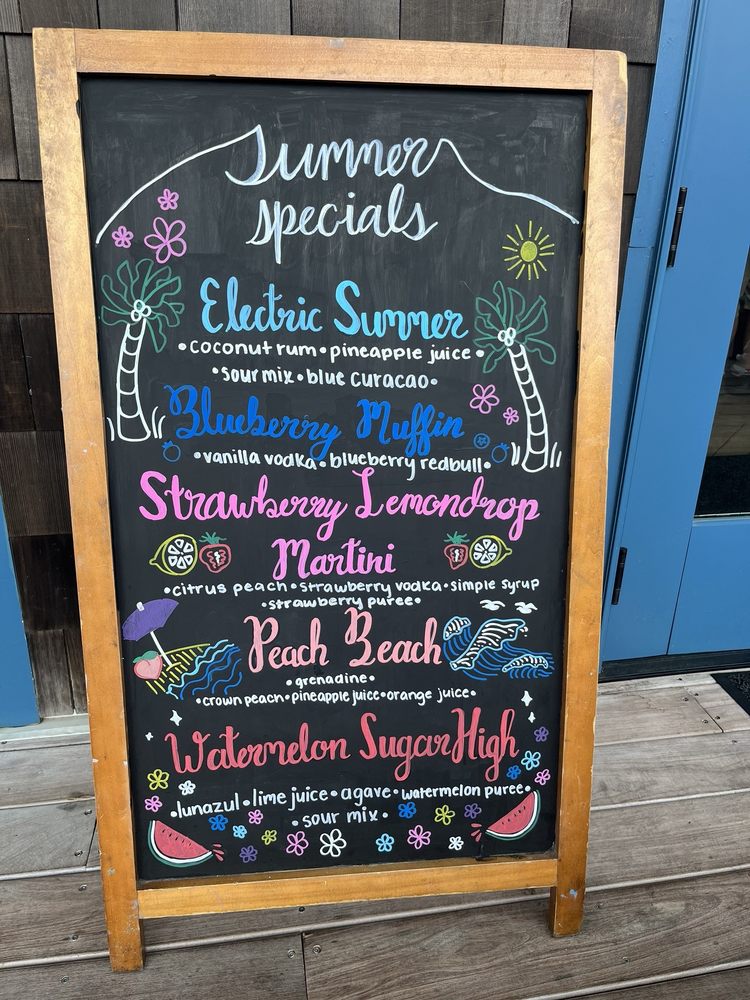 Summer
specials
Electric Summer
•coconut rum•pineapple juice•
•sour mix•blue curacao•
Blueberry Muffin
•vanilla vodka•blueberry redbull•
Strawberry Lemondrop
Martini
•citrus peach•strawberry vodka•simple syrup
•strawberry puree•
Peach Beach
•grenadine•
•crown peach•pineapple juice•orange juice•
Watermelon Sugar High
•lunazul•lime juice•agave•watermelon puree•
•sour mix•